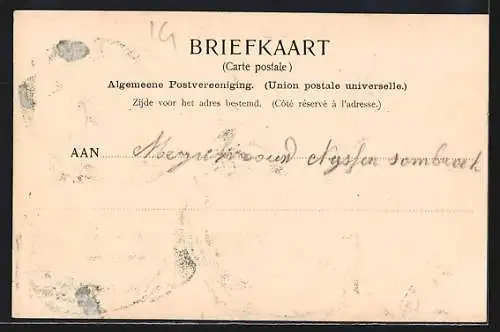 14
BRIEFKAART
(Carte postale)
Algemeene Postvereeniging. (Union postale universelle.)
Zijde voor het adres bestemd. (Côté réservé à l'adresse.)
AAN Nyssen